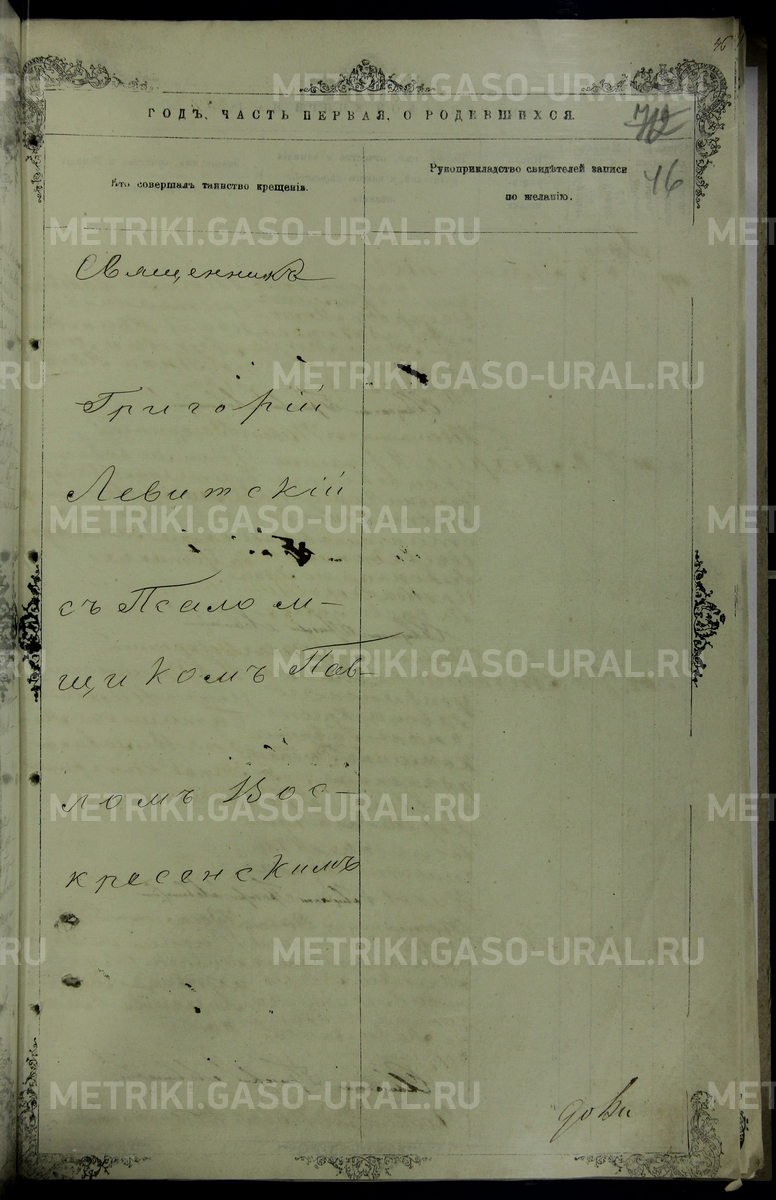 46
ГОДЪ, ЧАСТЬ ПЕРВАЯ, О РОДИВШИХСЯ.
Кто совершалъ таинство крещенія.
Рукоприкладство свидѣтелей записи
по желанію.
46
Священникъ
Григорій
Левитскій
съ Псалом-
щикомъ Пав-
ломъ Вос-
кресенскимъ
METRIKI.GASO-URAL.RU